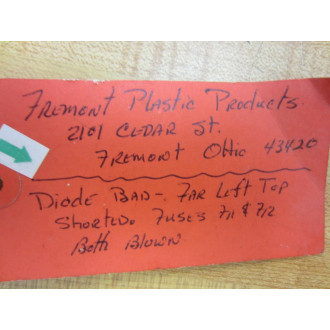 Fremont Plastic Products.
2101 CEDAR St.
Fremont Ohio 43420
Diode Bad - Far Left Top
Shorted. Fuses F1 & F2
Both Blown